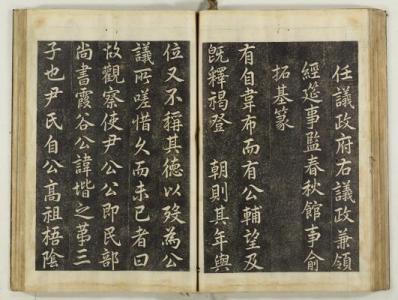 任議政府右議政兼領
經筵事監春秋館事俞
拓基篆
有自韋布而有公輔望及
旣釋褐登 朝則其年與
位又不稱其德以歿為公
議所嗟惜久而未已者曰
故觀察使尹公公即民部
尚書霞谷公諱堦之第三
子也尹氏自公高祖梧陰